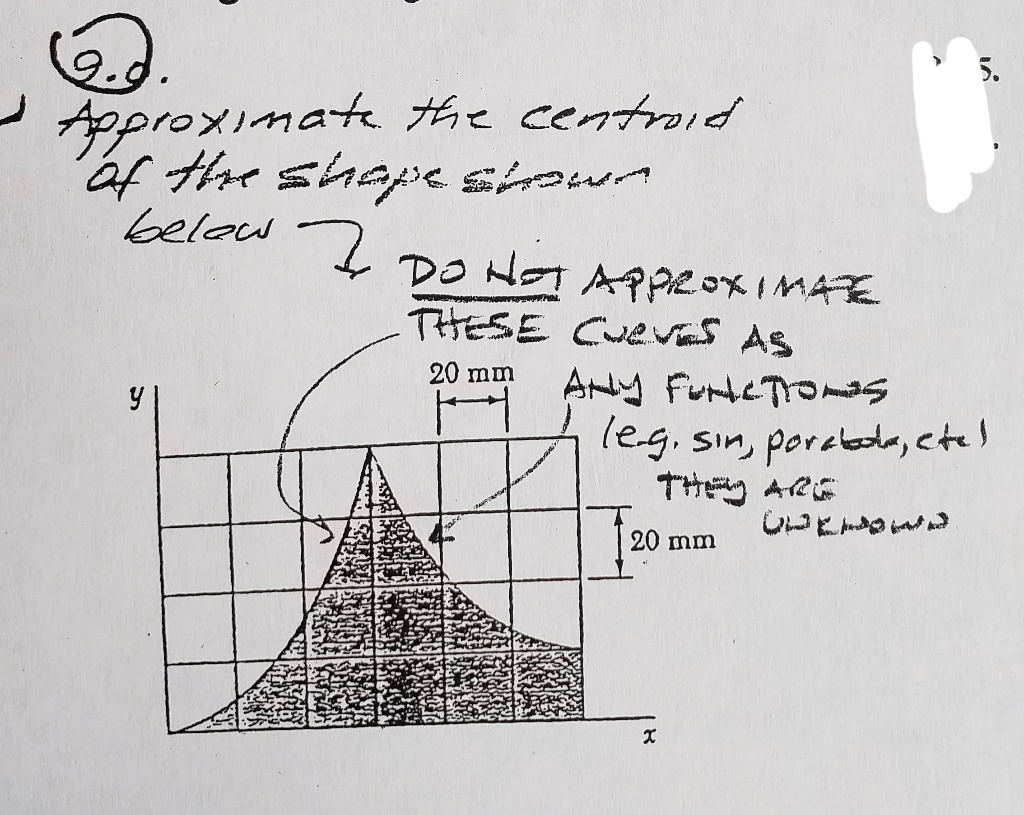 9.d.
5.
Approximate the centroid
of the shape shown
below
DO NOT APPROXIMATE
THESE CURVES AS
20 mm
ANY FUNCTIONS
y
(e.g. sin, parabola, etc)
THEY ARE
UNKNOWN
20 mm
x